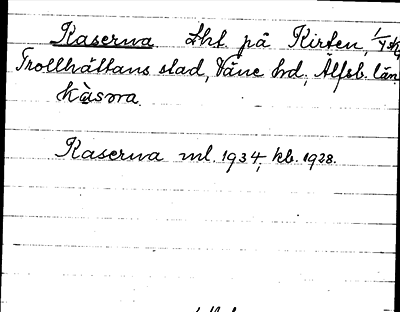 Kaserna Lht. på Kirten, 1/4 m,
Trollhättans stad, Väne hd, Älfsb. län
kàsna
Kaserna ml. 1934, kb. 1928.